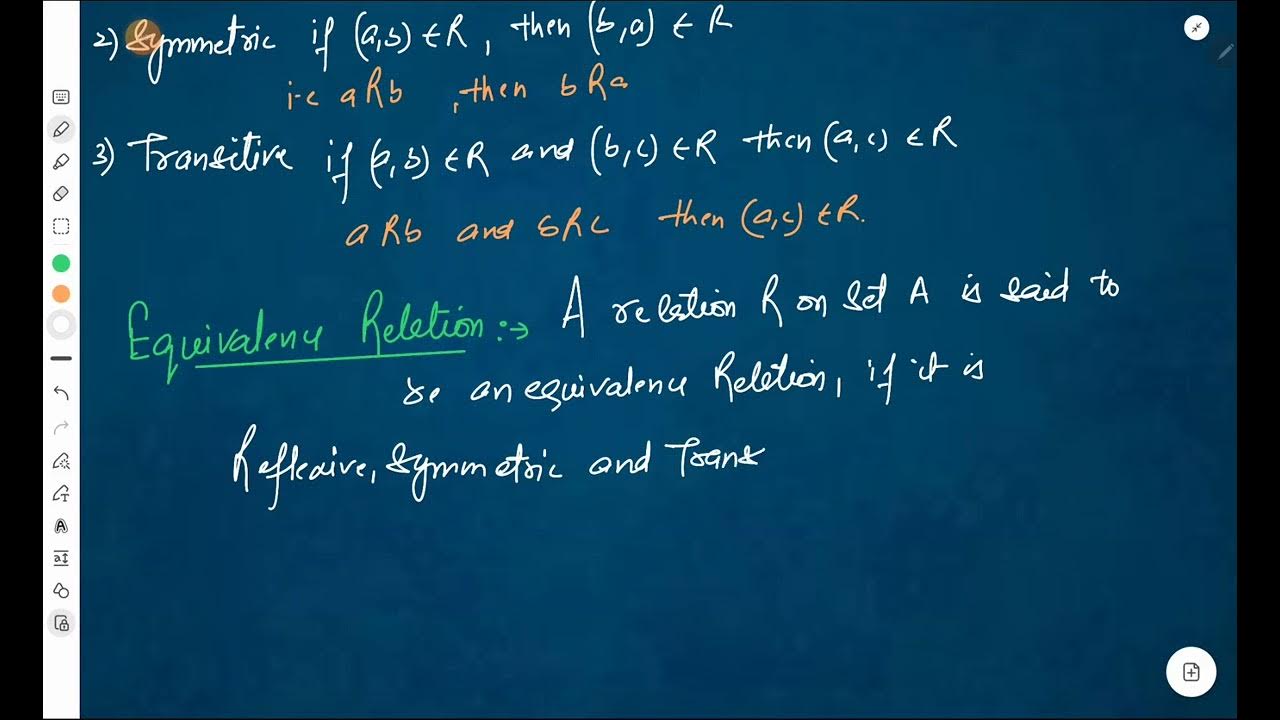 2) Symmetric if (a,b) ∈ R, then (b,a) ∈ R
i.e aRb , then bRa
3) Transitive if (a,b) ∈ R and (b,c) ∈ R then (a,c) ∈ R
aRb and bRc then (a,c) ∈ R.
Equivalence Reletion :→ A relation R on set A is said to
be an equivalence Reletion, if it is
Reflexive, Symmetric and Trans